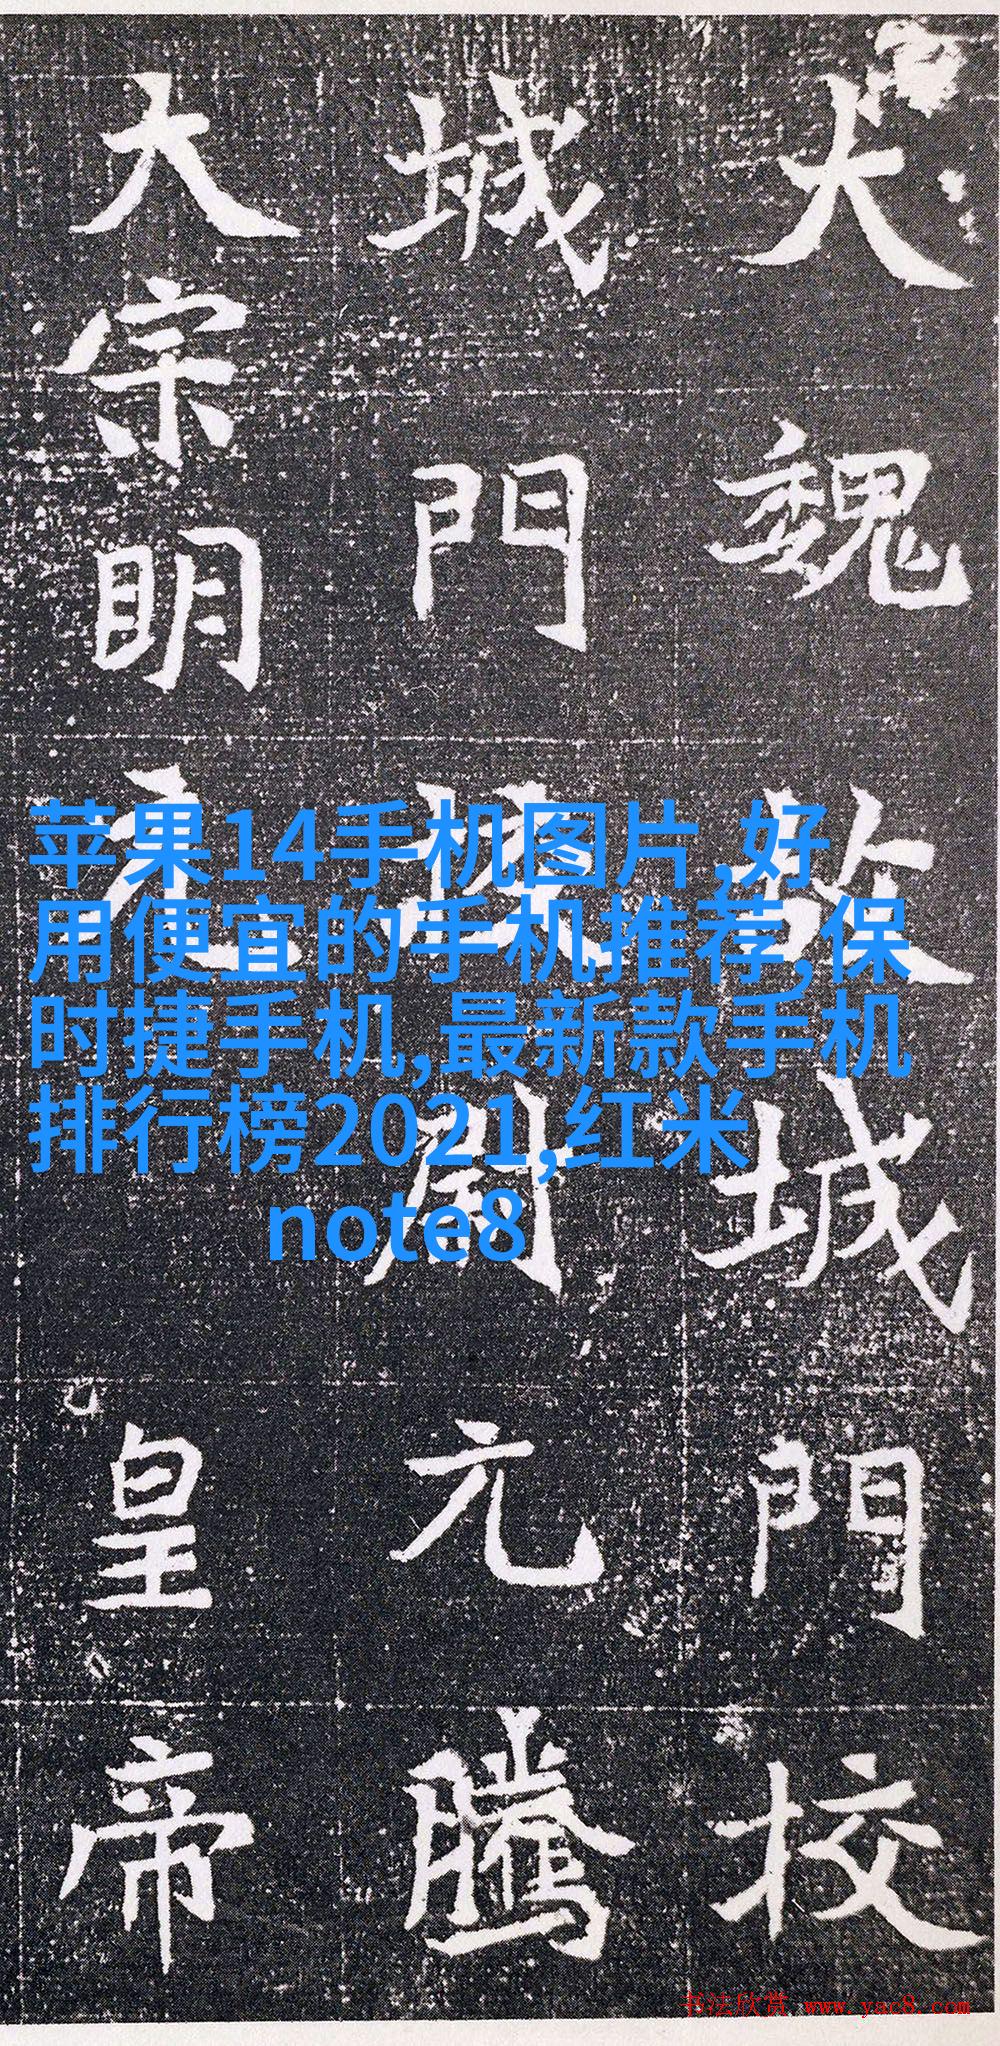 大魏故城門校
城門校尉元騰
大宗明元皇帝
苹果14手机图片,好
用便宜的手机推荐,保
时捷手机,最新款手机
排行榜2021,红米
note8
书法欣赏 www.yac8.com